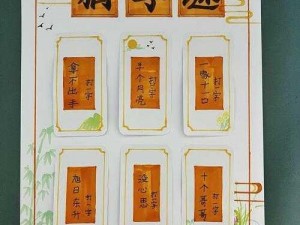 猜字谜
拿不出手
打一字
半个月亮
打一字
一家十一口
打一字
旭日东升
打一字
没心思
打一字
十个哥哥
打一字